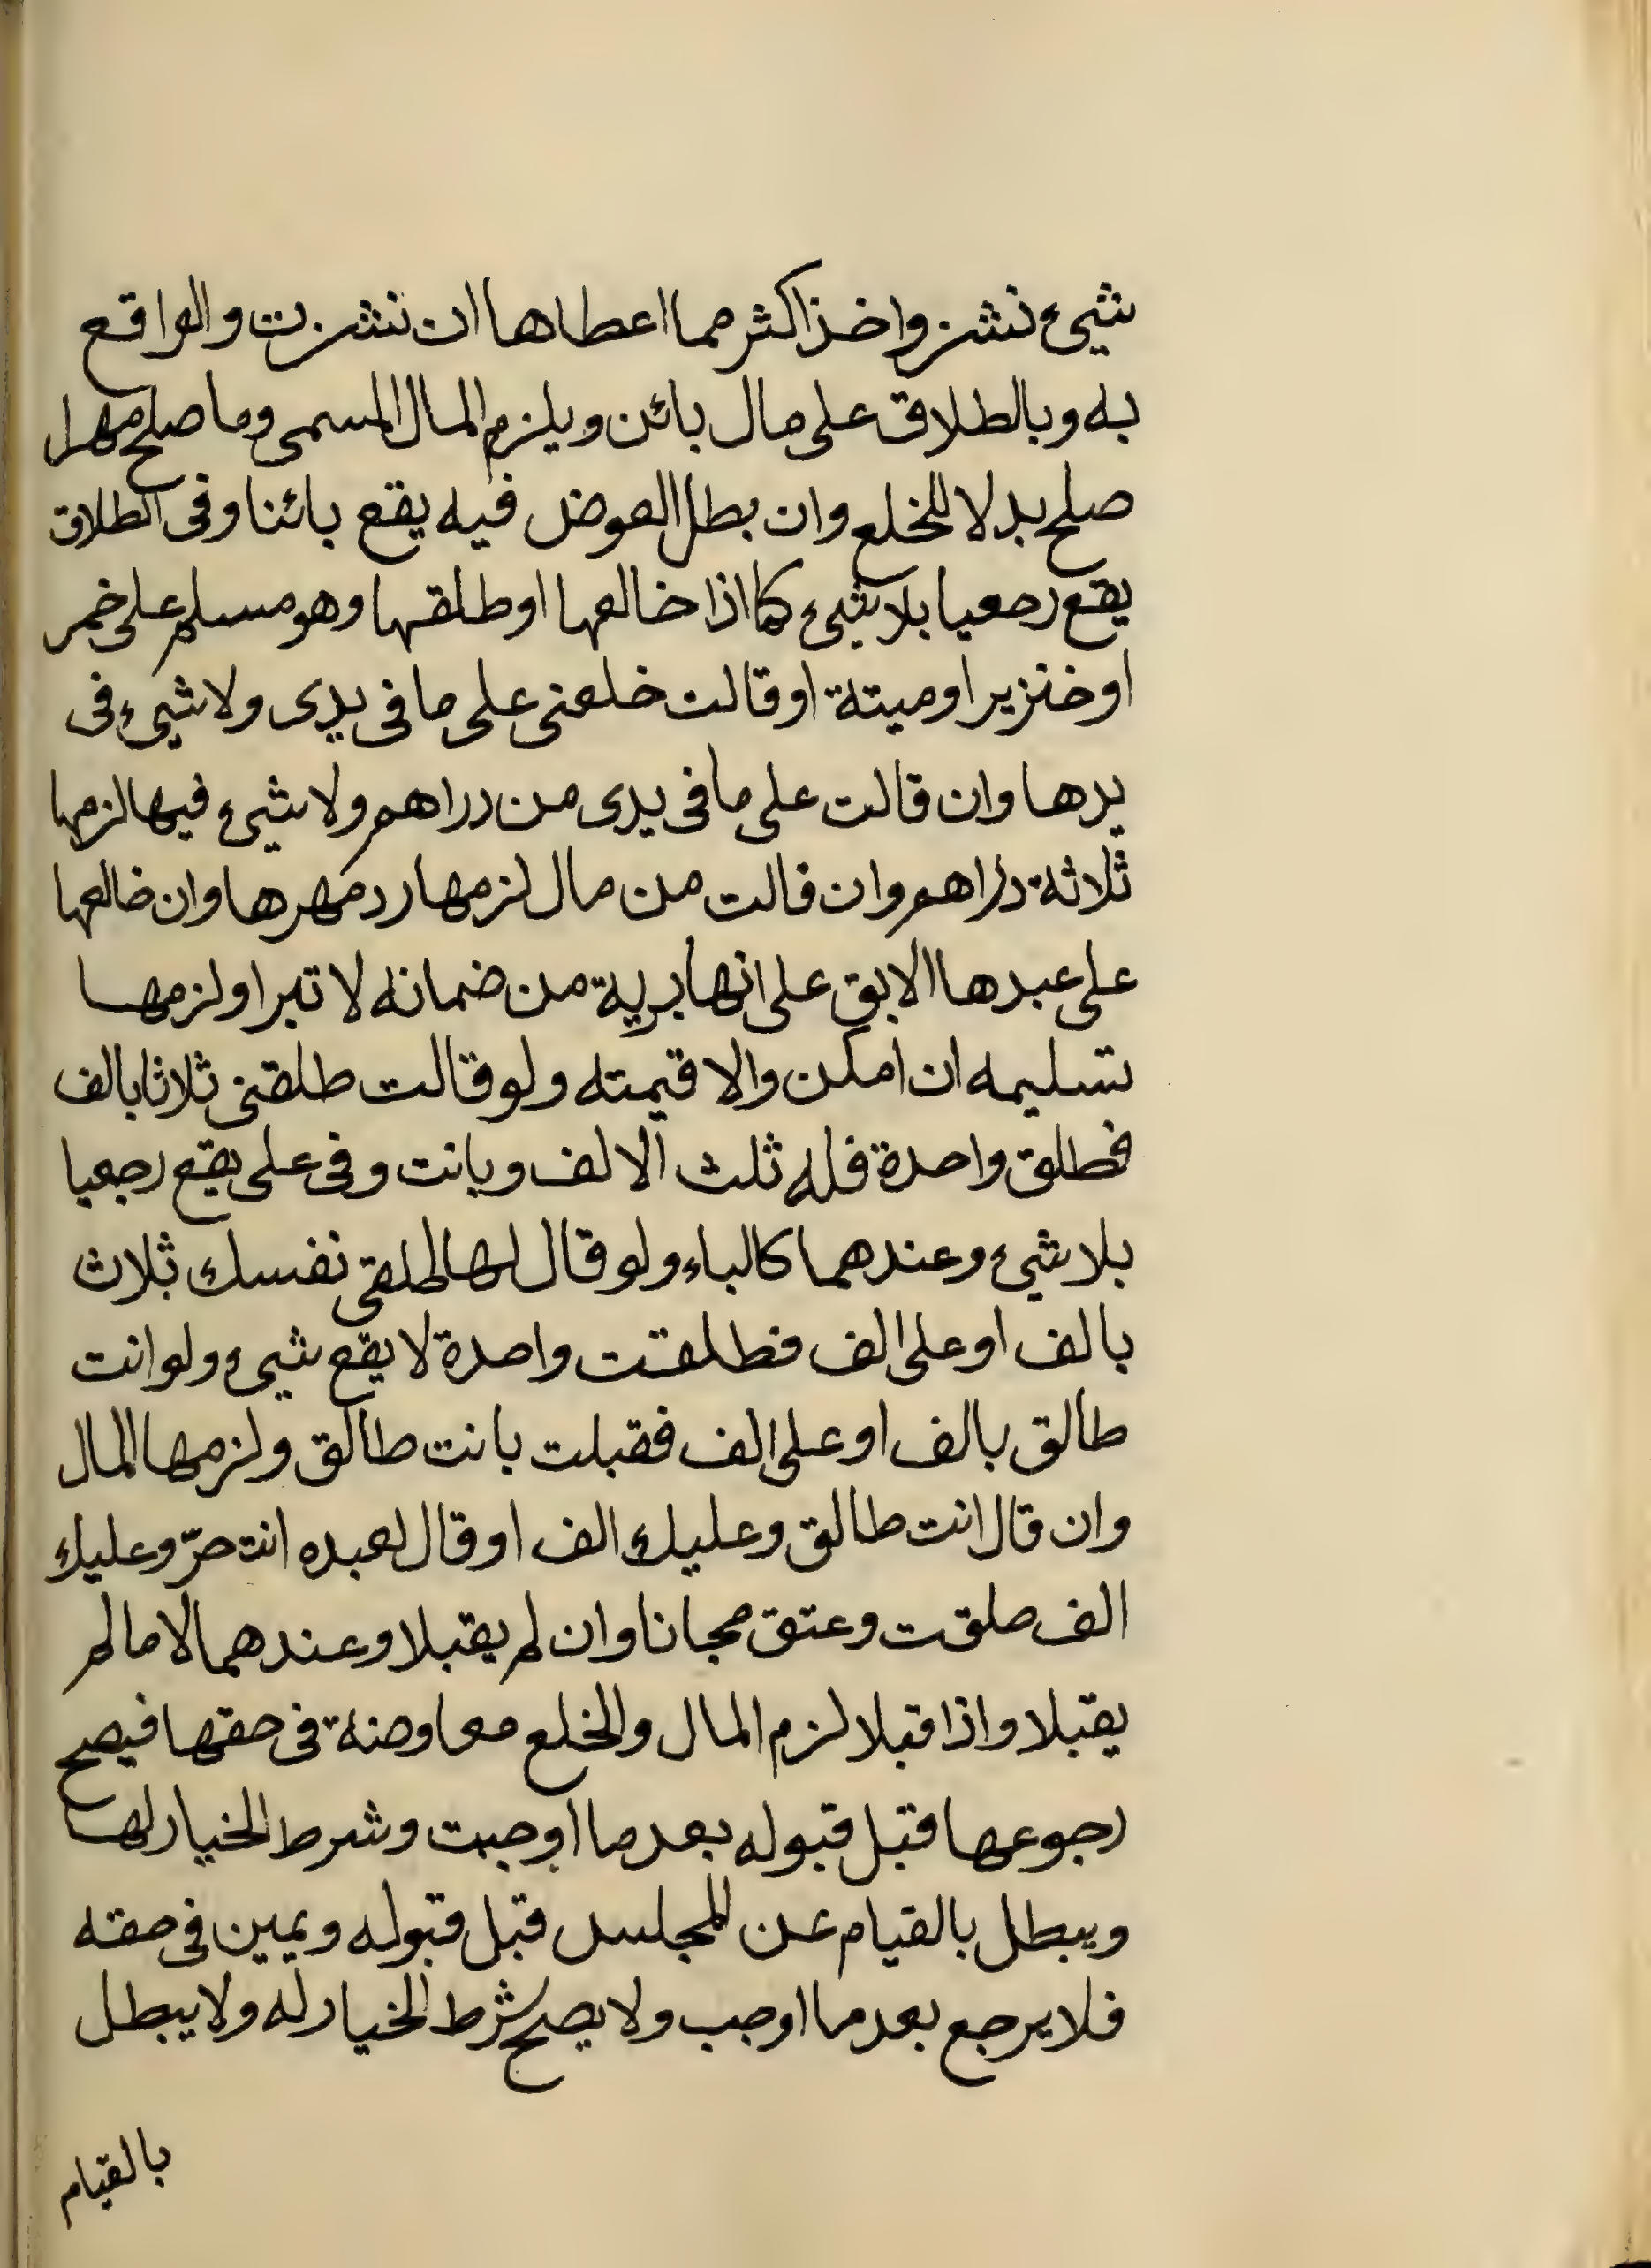 شيء نشز واخذ اكثر مما اعطاها ان نشزت والواقع
به وبالطلاق على مال بائن ويلزم المال المسمى وما صلح مهرا
صلح بدلا للخلع وان بطل العوض فيه يقع بائنا وفى الطلاق
يقع رجعيا بلا شيء كما اذا خالعها او طلقها وهو مسلم على خمر
او خنزير او ميتة او قالت خلعنى على ما فى يدى ولا شيء فى
يدها وان قالت على ما فى يدى من دراهم ولا شيء فيها لزمها
ثلاثة دراهم وان قالت من مال لزمها رد مهرها وان خالعها
على عبدها الابق على انها برية من ضمانه لا تبرا ولزمها
تسليمه ان امكن والا قيمته ولو قالت طلقنى ثلاثا بالف
فطلق واحدة فله ثلث الالف وبانت وفى على يقع رجعيا
بلا شيء وعندهما كالباء ولو قال لها طلقى نفسك ثلاث
بالف او على الف فطلقت واحدة لا يقع شيء ولو انت
طالق بالف او على الف فقبلت بانت طالق ولزمها المال
وان قال انت طالق وعليك الف او قال لعبده انت حرّ وعليك
الف طلقت وعتق مجانا وان لم يقبلا وعندهما لا ما لم
يقبلا واذا قبلا لزم المال والخلع معاوضة فى حقها فيصح
رجوعها قبل قبوله بعد ما اوجبت وشرط الخيار لها
ويبطل بالقيام عن المجلس قبل قبوله ويمين فى حقه
فلا يرجع بعد ما اوجب ولا يصح شرط الخيار له ولا يبطل
بالقيام